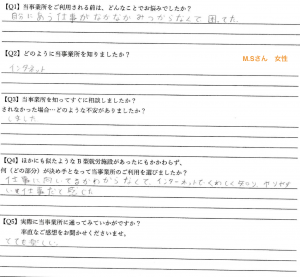 【Q1】当事業所をご利用される前は、どんなことでお悩みでしたか？
自分にあう仕事がなかなかみつからなくて困ってた
【Q2】どのように当事業所を知りましたか？
M.Sさん 女性
インターネット
【Q3】当事業所を知ってすぐに相談しましたか？
されなかった場合…どのような不安がありましたか？
しました
【Q4】ほかにも似たようなB型就労施設があったにもかかわらず、
何（どの部分）が決め手となって当事業所のご利用を選びましたか？
仕事に
いい仕事だと感じた
【Q5】実際に当事業所に通ってみていかがですか？
率直なご感想をお聞かせくださいませ。
とても楽しい